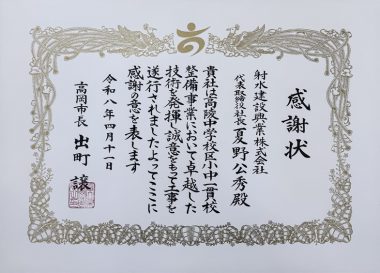 感謝状
射水建設興業株式会社
代表取締役社長 夏野公秀殿
貴社は高陵中学校区小中一貫校
整備事業において卓越した
技術を発揮し誠意をもって工事を
遂行されましたよってここに
感謝の意を表します
令和八年四月十一日
高岡市長 出町 譲